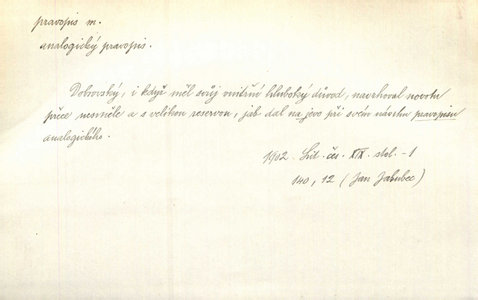 pravopis m.
analogický pravopis.
Dobrovský, i když měl svůj vnitřní hluboký důvod, navrhoval novotu
přece nesměle a s velikou reservou, jak dal na jevo při svém návrhu pravopisu
analogického.
1902 Lit. čes. XIX. stol. -1
140, 12 (Jan Jakubec)